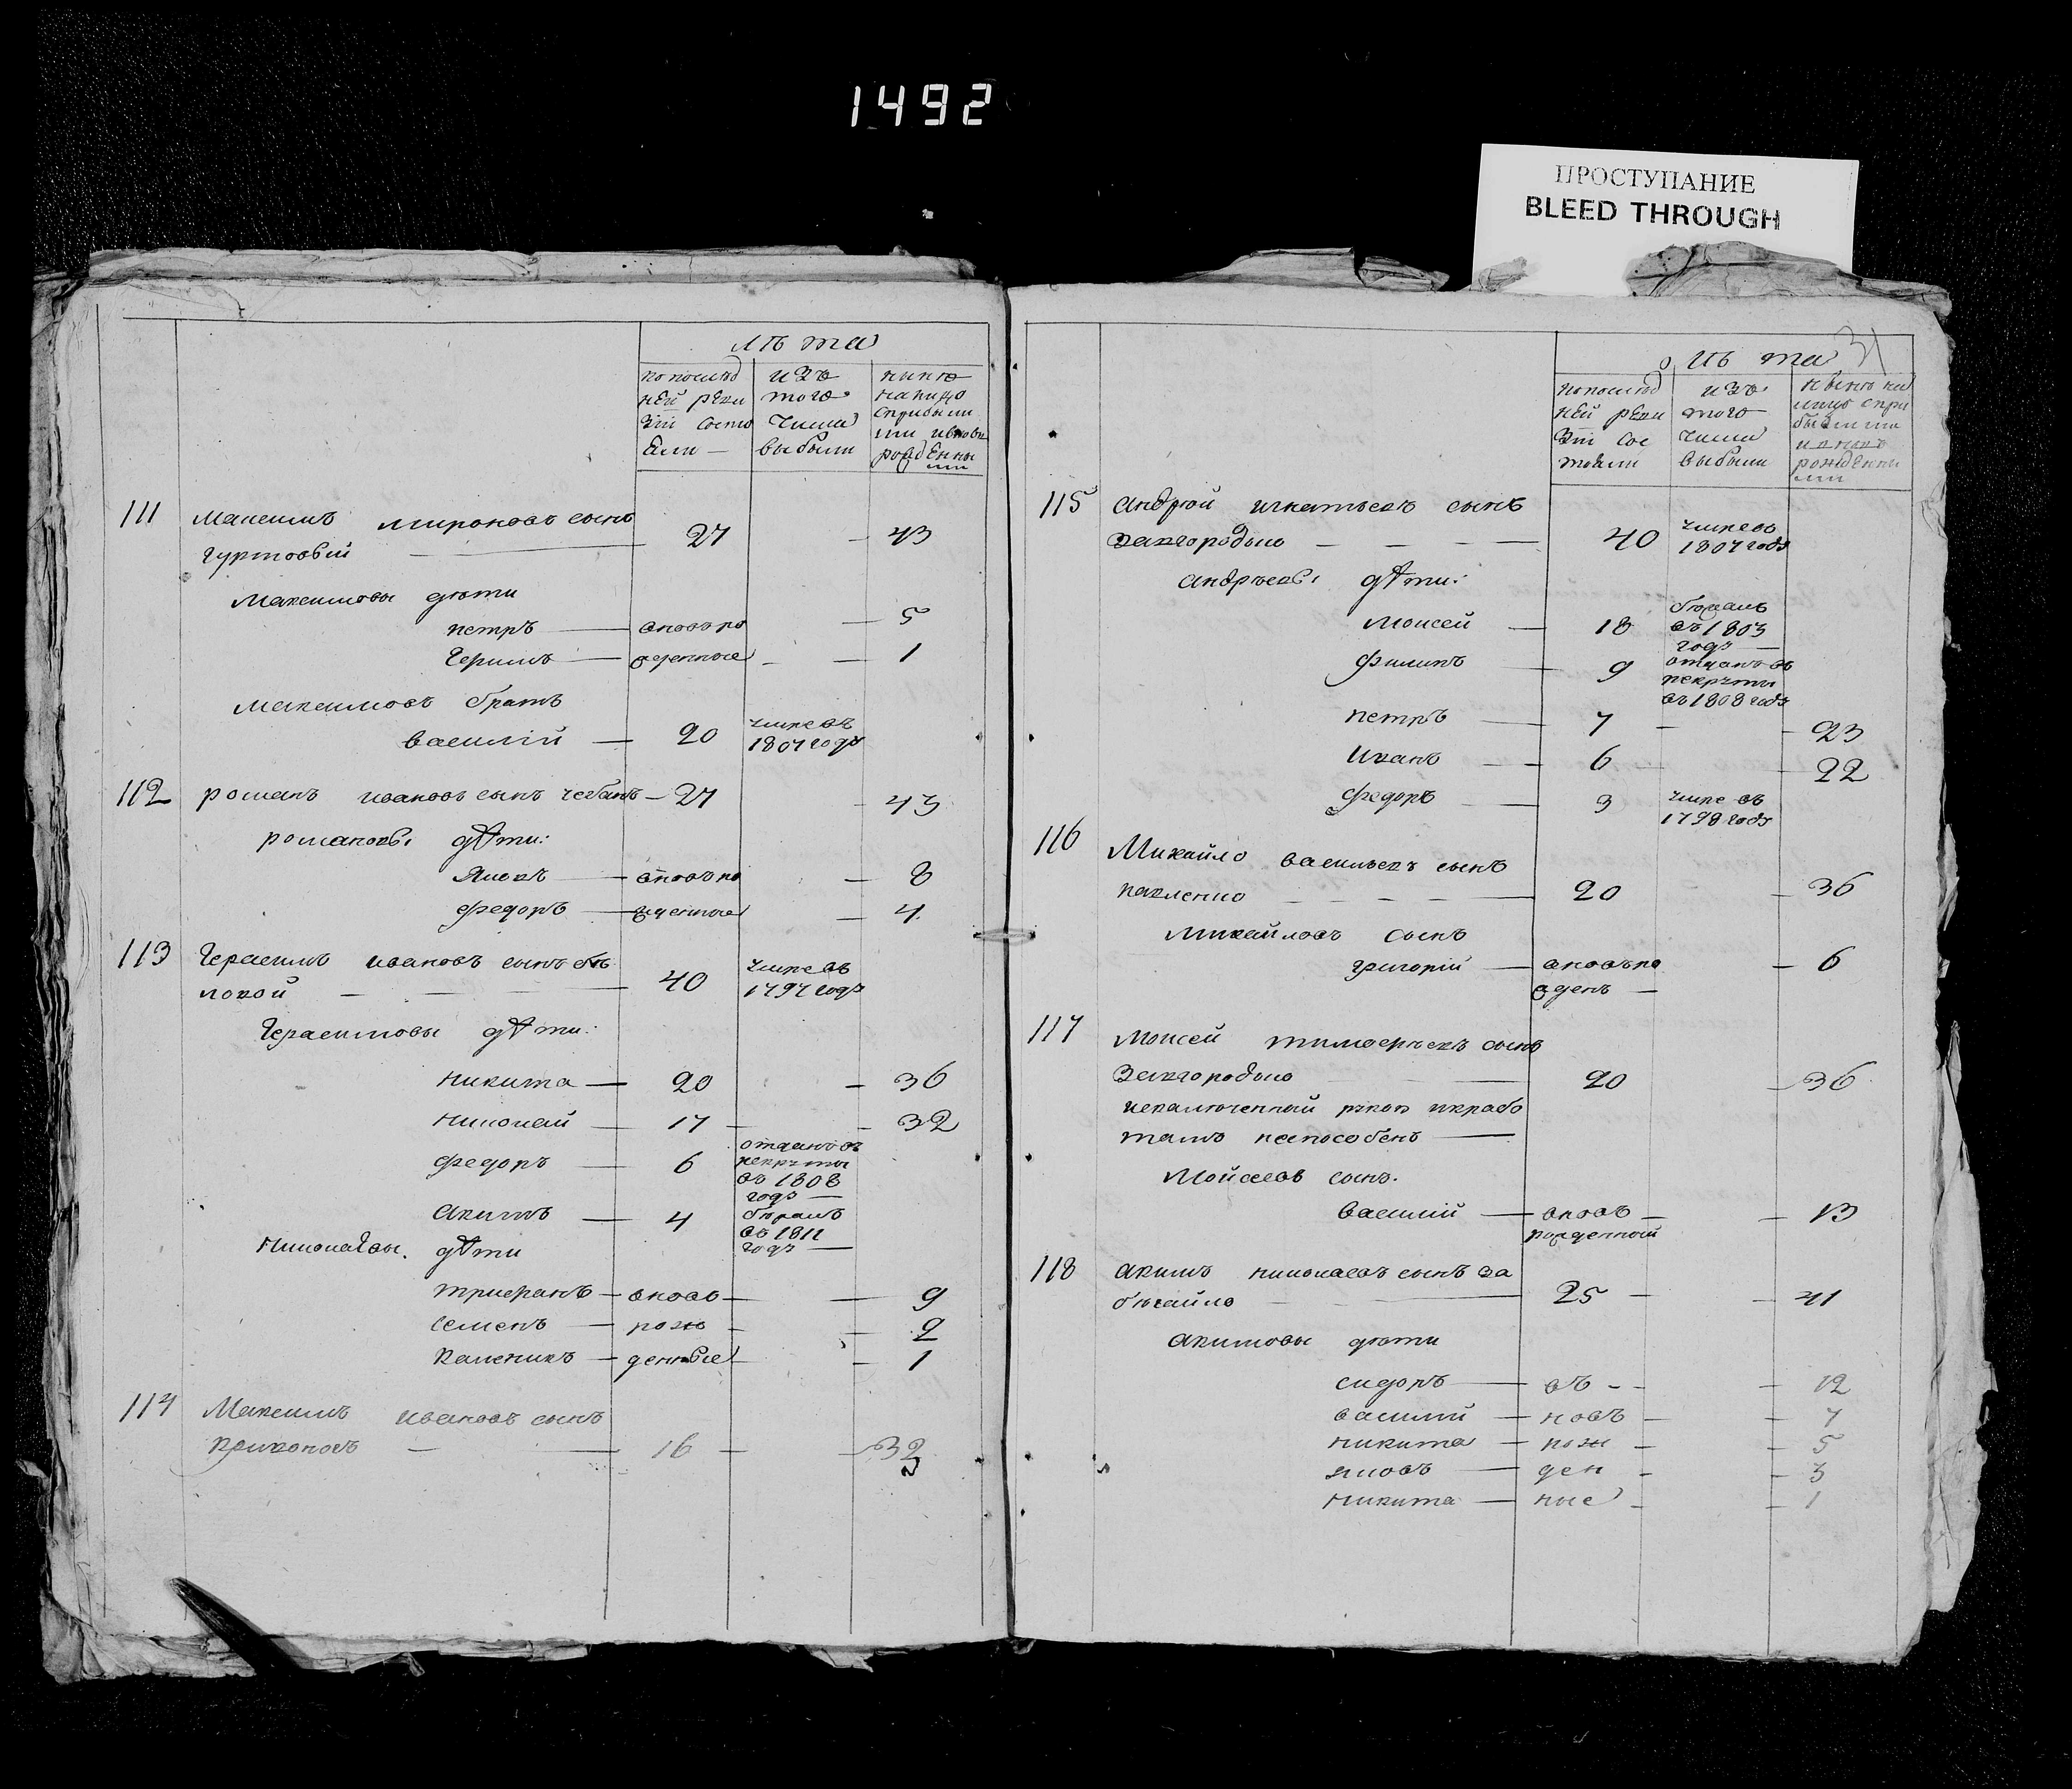 1492
ПРОСТУПАНИЕ
BLEED THROUGH
лѣта
попослѣд
ней реви
зіи состо
яли —
изъ
того
числа
выбыли
нынѣ
налицо
сприбылы
ми ивновь
рожденны
ми
111 Максимъ мироновъ сынъ
гуртовый — 27 — 43
Максимовы дѣти
петръ — вновь ро — 5
Герасимъ — жденные — 1
максимовъ братъ
василій — 20 умре въ
1807 годѣ
112 романъ ивановъ сынъ чебанъ — 27 — 43
романовы дѣти:
Яковъ — вновь ро — 8
федоръ — жденные — 4
113 Герасимъ ивановъ сынъ бѣ
локой — 40 умре въ
1797 годѣ
Герасимовы дѣти:
никита — 20 — 36
николай — 17 — 32
федоръ — 6 отданъ въ
рекруты
въ 1808
годѣ —
акимъ — 4 бѣжалъ
въ 1811
годѣ —
Николаевы дѣти
трифанъ — вновь — 9
семенъ — рож — 2
каленикъ — денные — 1
114 Максимъ ивановъ сынъ
кривоносъ — 16 — 32
31
лѣта
попослѣд
ней реви
зіи сос
тояли
изъ
того
числа
выбыли
нынѣ на
лицо спри
былыми
и вновь
рожденны
ми
115 андрей игнатьевъ сынъ
завгородько — 40 умре въ
1807 годѣ
андреевы дѣти:
моисей — 18 бѣжалъ
въ 1803
годѣ —
филипъ — 9 отданъ въ
рекруты
въ 1808 годѣ
петръ — 7 — 23
иванъ — 6 — 22
федоръ — 3 умре въ
1798 годѣ
116 Михайло васильевъ сынъ
павленко — 20 — 36
михайловъ сынъ
григорій — вновь ро — 6
жденъ —
117 Моисей тимофеевъ сынъ
Завгородько — 20 — 36
искалеченный рукою икрабо
тамъ неспособенъ —
Мойсеевъ сынъ.
василій — вновь — 13
рожденный
118 акимъ николаевъ сынъ за
бигайло — 25 — 41
акимовы дѣти
сидоръ — въ — 12
василий — новъ — 7
никита — рож — 5
яковъ — ден — 3
никита — ные — 1